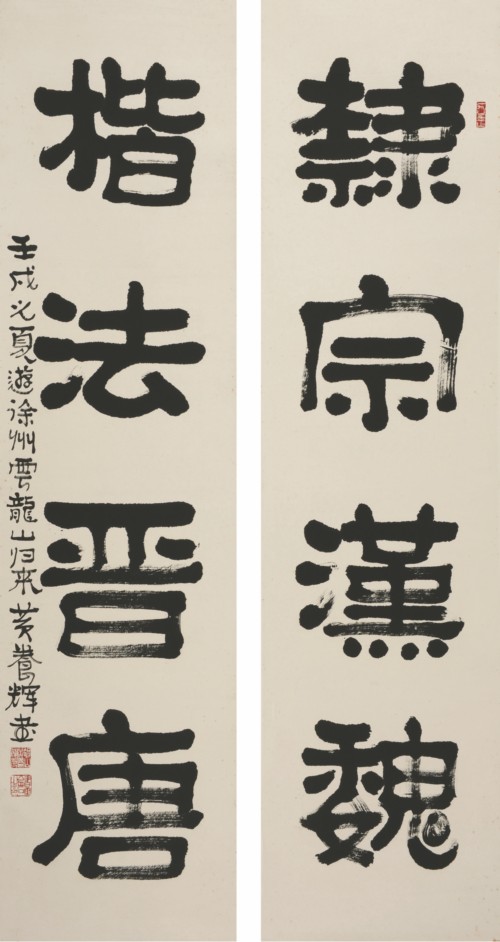 隸宗漢魏
楷法晋唐
壬戌之夏遊徐州雲龍山归来黄養辉书